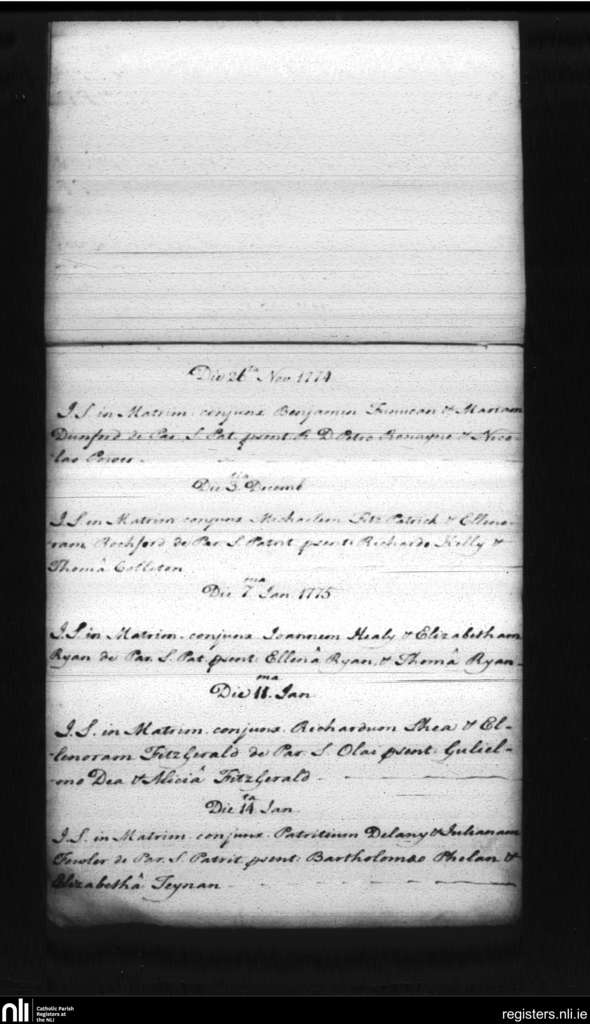 Die 26ta Nov. 1774
I.S. in Matrim. conjunx. Benjamin & Mariam
Dunford de Par. S. Pat psent: R. D. Petro Ronayne & Nico-
lao Power
Die 3tia Decemb
I.S in Matrim conjunx Michaelem FitzPatrick & Elleno-
ram Rochford de Par S. Patrit psent: Richardo Kelly &
Thomâ Colleton
Die 7ma Jan 1775
I.S in Matrim. conjunx Joannem Healy & Elizabetham
Ryan de Par. S. Pat psent: Ellenâ Ryan, & Thomâ Ryan
Die 11.ma Jan
I.S. in Matrim. conjunx. Richardum Shea & El-
lenoram FitzGerald de Par. S. Olai psent: Guliel-
mo Dea & Aliciâ FitzGerald
Die 14ta Jan
I.S. in Matrim. conjunx. Patritium Delany & Julianam
Fowler de Par. S. Patrit. psent: Bartholomæo Phelan &
Elizabethâ Teynan
nli Catholic Parish
Registers at
the NLI
registers.nli.ie